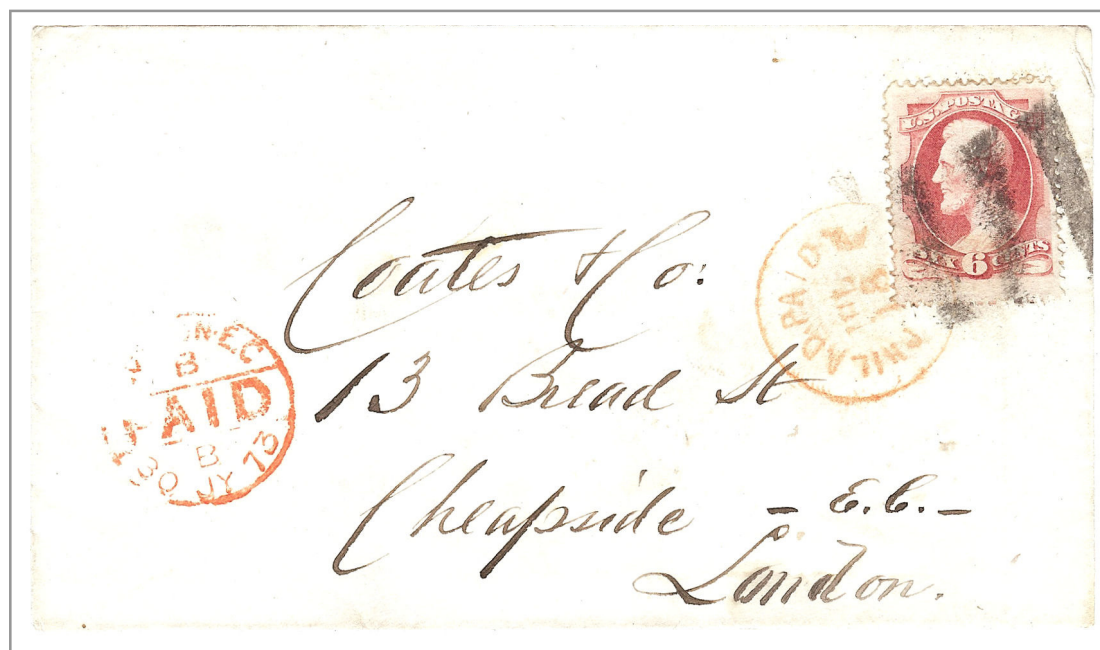 U.S. POSTAGE
SIX 6 CENTS
PHILADA PAID
JUL
Coates & Co:
13 Bread St
Cheapside - E.C. -
London.
B
PAID
B
30 JY 73